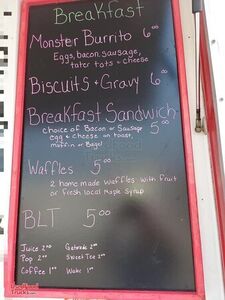 Breakfast
Monster Burrito 6.00
Eggs, bacon, sausage,
tater tots + cheese
Biscuits + Gravy 6.00
Breakfast Sandwich
choice of Bacon or Sausage 5.00
egg + cheese on toast,
muffin or Bagel
Waffles 5.00
2 home made waffles with fruit
or fresh local Maple Syrup
BLT 5.00
Juice 2.00 Gatorade 2.00
Pop 2.00 Sweet Tea 2.00
Coffee 1.00 Water 1.00